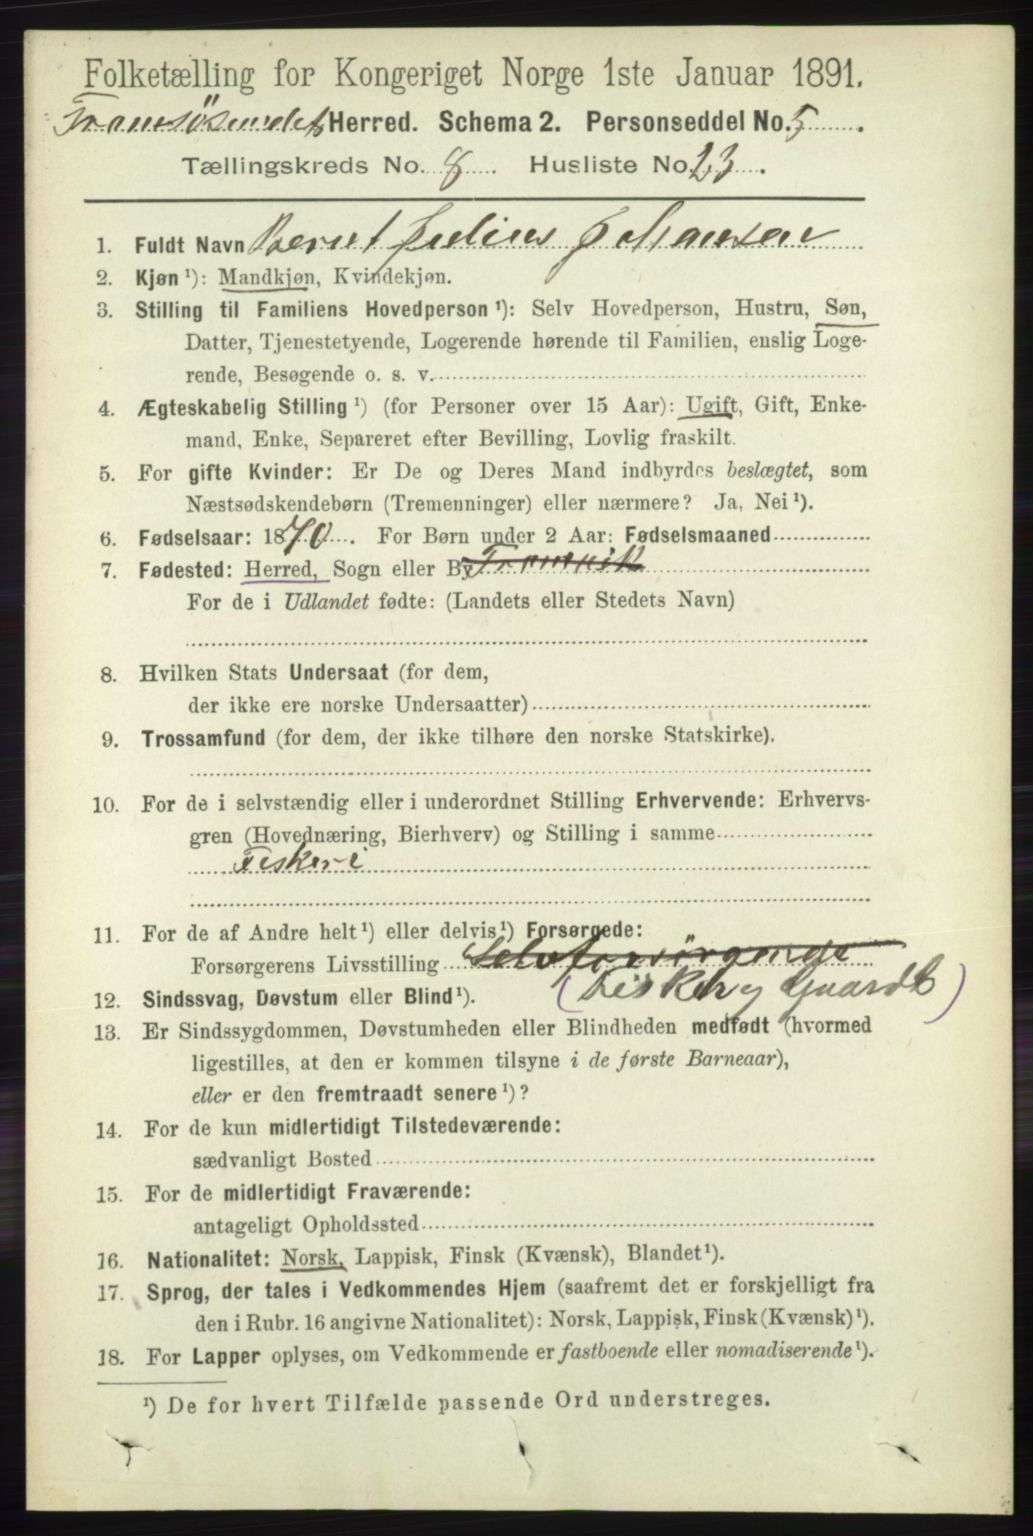 Folketælling for Kongeriget Norge 1ste Januar 1891.
Tromsøsundets Herred. Schema 2. Personseddel No. 5.
Tællingskreds No. 8. Husliste No. 23.
1. Fuldt Navn Bernt Julius Johansen
2. Kjøn ¹): Mandkjøn, Kvindekjøn.
3. Stilling til Familiens Hovedperson ¹): Selv Hovedperson, Hustru, Søn,
Datter, Tjenestetyende, Logerende hørende til Familien, enslig Loge-
rende, Besøgende o. s. v.
4. Ægteskabelig Stilling ¹) (for Personer over 15 Aar): Ugift, Gift, Enke-
mand, Enke, Separeret efter Bevilling, Lovlig fraskilt.
5. For gifte Kvinder: Er De og Deres Mand indbyrdes beslægtet, som
Næstsødskendebørn (Tremenninger) eller nærmere? Ja, Nei ¹).
6. Fødselsaar: 1870. For Børn under 2 Aar: Fødselsmaaned
7. Fødested: Herred, Sogn eller By Tromvik
For de i Udlandet fødte: (Landets eller Stedets Navn)
8. Hvilken Stats Undersaat (for dem,
der ikke ere norske Undersaatter)
9. Trossamfund (for dem, der ikke tilhøre den norske Statskirke).
10. For de i selvstændig eller i underordnet Stilling Erhvervende: Erhvervs-
gren (Hovednæring, Bierhverv) og Stilling i samme
Fiskeri
11. For de af Andre helt ¹) eller delvis ¹) Forsørgede:
Forsørgerens Livsstilling Selvforsørgende
(Fisker og Gaardb)
12. Sindssvag, Døvstum eller Blind ¹).
13. Er Sindssygdommen, Døvstumheden eller Blindheden medfødt (hvormed
ligestilles, at den er kommen tilsyne i de første Barneaar),
eller er den fremtraadt senere ¹)?
14. For de kun midlertidigt Tilstedeværende:
sædvanligt Bosted
15. For de midlertidigt Fraværende:
antageligt Opholdssted
16. Nationalitet: Norsk, Lappisk, Finsk (Kvænsk), Blandet ¹).
17. Sprog, der tales i Vedkommendes Hjem (saafremt det er forskjelligt fra
den i Rubr. 16 angivne Nationalitet): Norsk, Lappisk, Finsk (Kvænsk) ¹).
18. For Lapper oplyses, om Vedkommende er fastboende eller nomadiserende ¹).
¹) De for hvert Tilfælde passende Ord understreges.